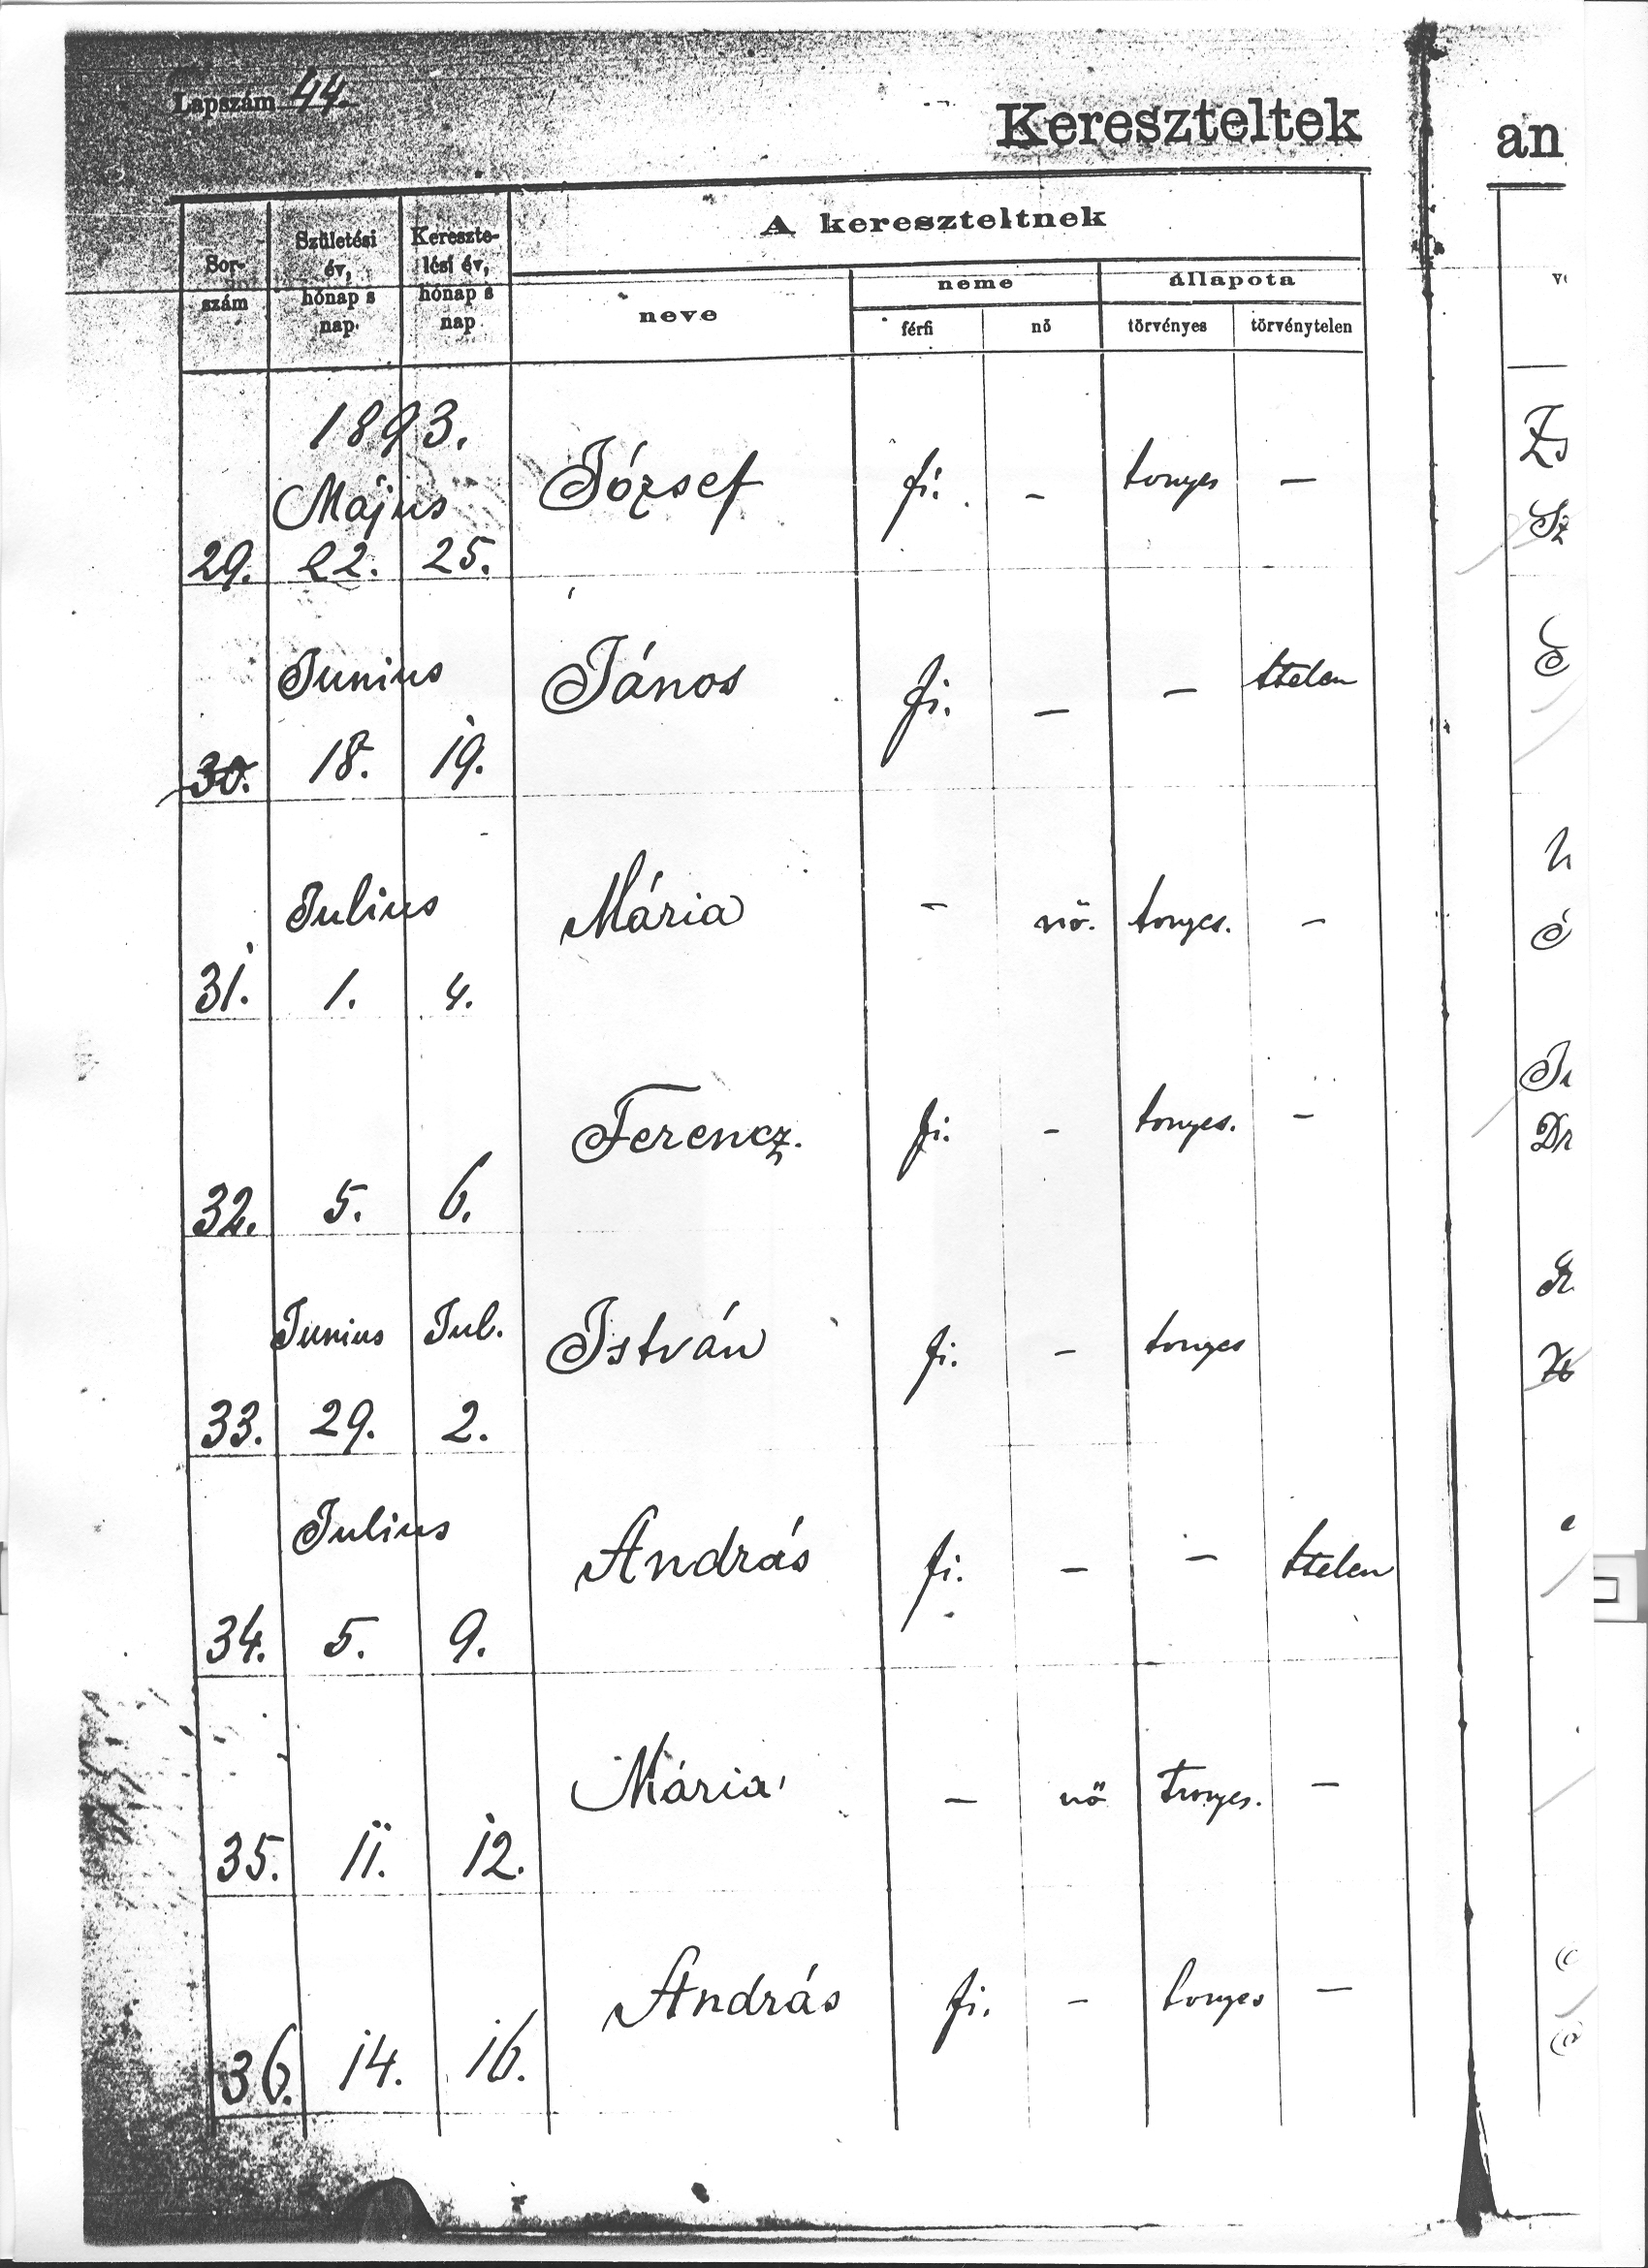 Lapszám 44.
Kereszteltek
an
Sor-
szám
Születési
év,
hónap s
nap.
Kereszte-
lési év,
hónap s
nap
A kereszteltnek
neve
neme
állapota
férfi
nő
törvényes
törvénytelen
1893.
Május
29. 22. 25. József fi. – tvnyes –
Junius
30. 18. 19. János fi. – – ttelen
Julius
31. 1. 4. Mária – nő. tvnyes. –
32. 5. 6. Ferencz. fi. – tvnyes. –
Junius Jul.
33. 29. 2. István fi. – tvnyes
Julius
34. 5. 9. András fi. – – ttelen
35. 11. 12. Mária – nő tvnyes. –
36. 14. 16. András fi. – tvnyes –